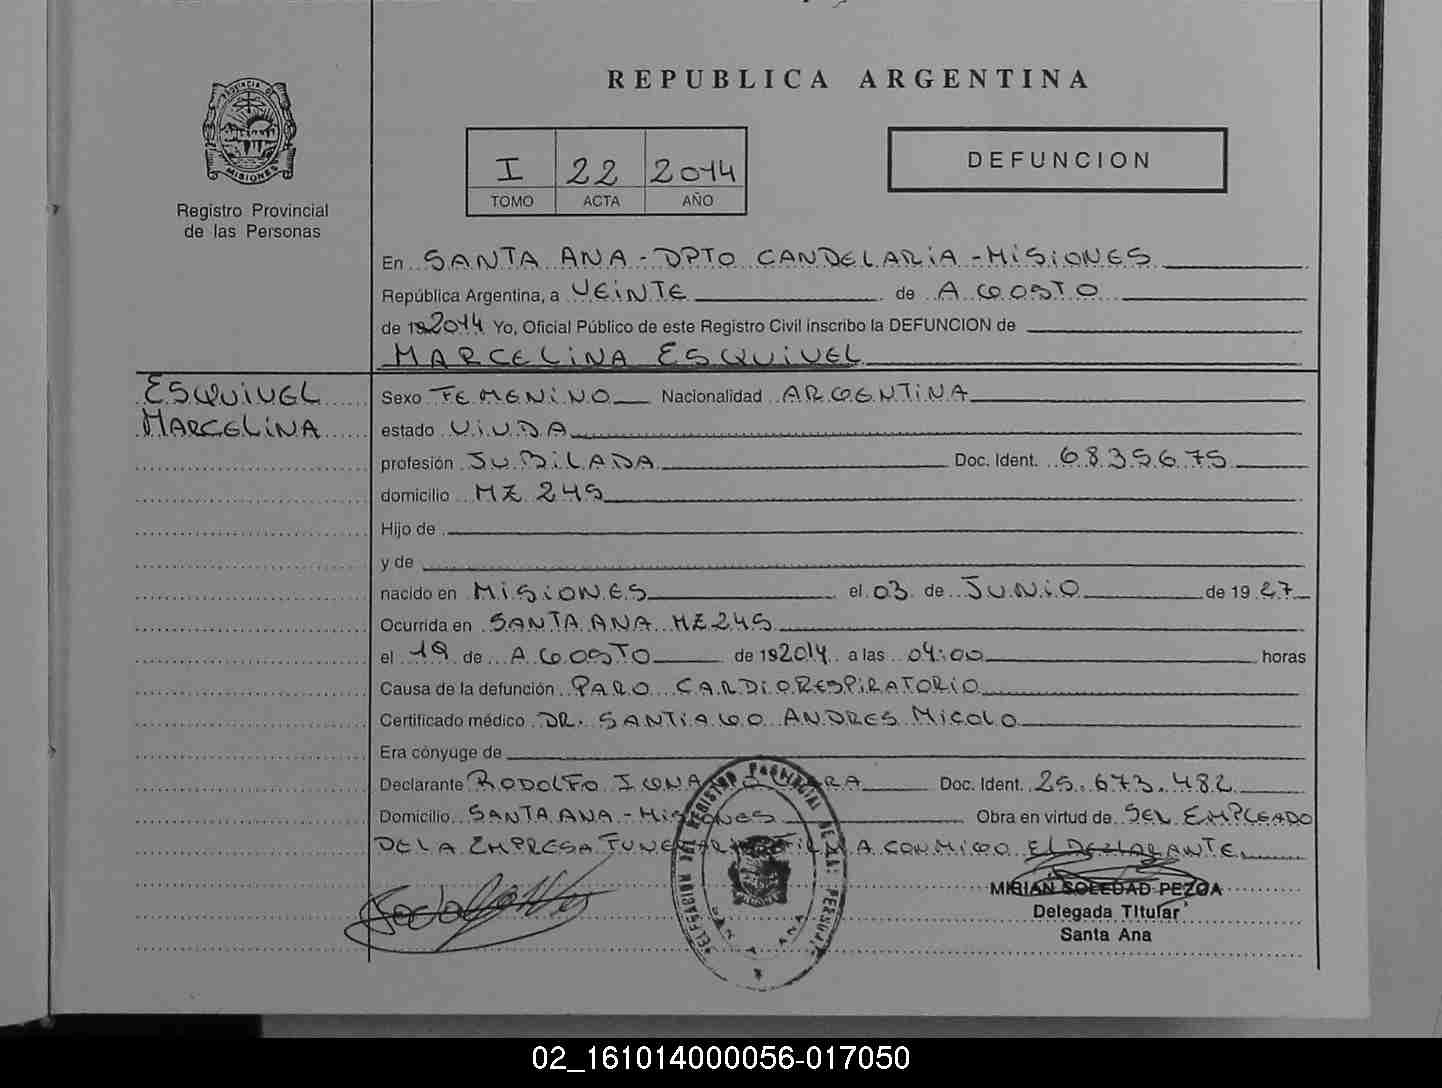 REPUBLICA ARGENTINA
PROVINCIA DE
MISIONES
Registro Provincial
de las Personas
I 22 2014
TOMO ACTA AÑO
DEFUNCION
En SANTA ANA - DPTO CANDELARIA - MISIONES
República Argentina, a VEINTE de AGOSTO
de 2014 Yo, Oficial Público de este Registro Civil inscribo la DEFUNCION de
MARCELINA ESQUIVEL
ESQUIVEL
MARCELINA
Sexo FEMENINO Nacionalidad ARGENTINA
estado VIUDA
profesión JUBILADA Doc. Ident. 6835675
domicilio MZ 245
Hijo de
y de
nacido en MISIONES el 03 de JUNIO de 1927
Ocurrida en SANTA ANA MZ 245
el 19 de AGOSTO de 2014 a las 04:00 horas
Causa de la defunción PARO CARDIORESPIRATORIO
Certificado médico DR. SANTIAGO ANDRES MICOLO
Era cònyuge de
Declarante RODOLFO Doc. Ident. 25.673.482
Domicilio SANTA ANA - MISIONES Obra en virtud de SER EMPLEADO
DE LA EMPRESA FUNERARIA FIRMA CONMIGO El DECLARANTE
MIRIAN SOLEDAD PEZOA
Delegada Titular
Santa Ana
02_161014000056-017050